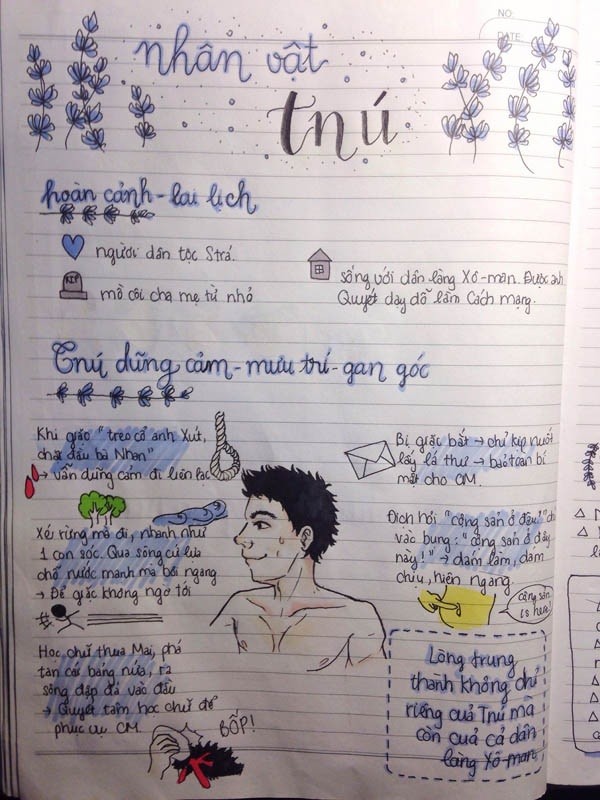 NO:
DATE:
nhân vật
tnú
hoàn cảnh - lai lịch
người dân tộc Strá.
RIP
mồ côi cha mẹ từ nhỏ
sống với dân làng Xô-man. Được anh
Quyết dạy dỗ làm Cách mạng.
Tnú dũng cảm - mưu trí - gan góc
Khi giặc "treo cổ anh Xút,
chặt đầu bà Nhan"
→ vẫn dũng cảm đi liên lạc
Xé rừng mà đi, nhanh như
1 con sóc. Qua sông cứ lựa
chỗ nước mạnh mà bơi ngang
→ Để giặc không ngờ tới
Học chữ thua Mai, phá
tan cái bảng nứa, ra
sông đập đá vào đầu
→ Quyết tâm học chữ để
phục vụ CM.
BỐP!
Bị giặc bắt → chỉ kịp nuốt
lấy lá thư → bảo toàn bí
mật cho CM.
Địch hỏi "cộng sản ở đâu" chỉ
vào bụng: "cộng sản ở đây
này!" → dám làm, dám
chịu, hiên ngang.
cộng sản
is here!
Lòng trung
thành không chỉ
riêng của Tnú mà
còn của cả dân
làng Xô-man.